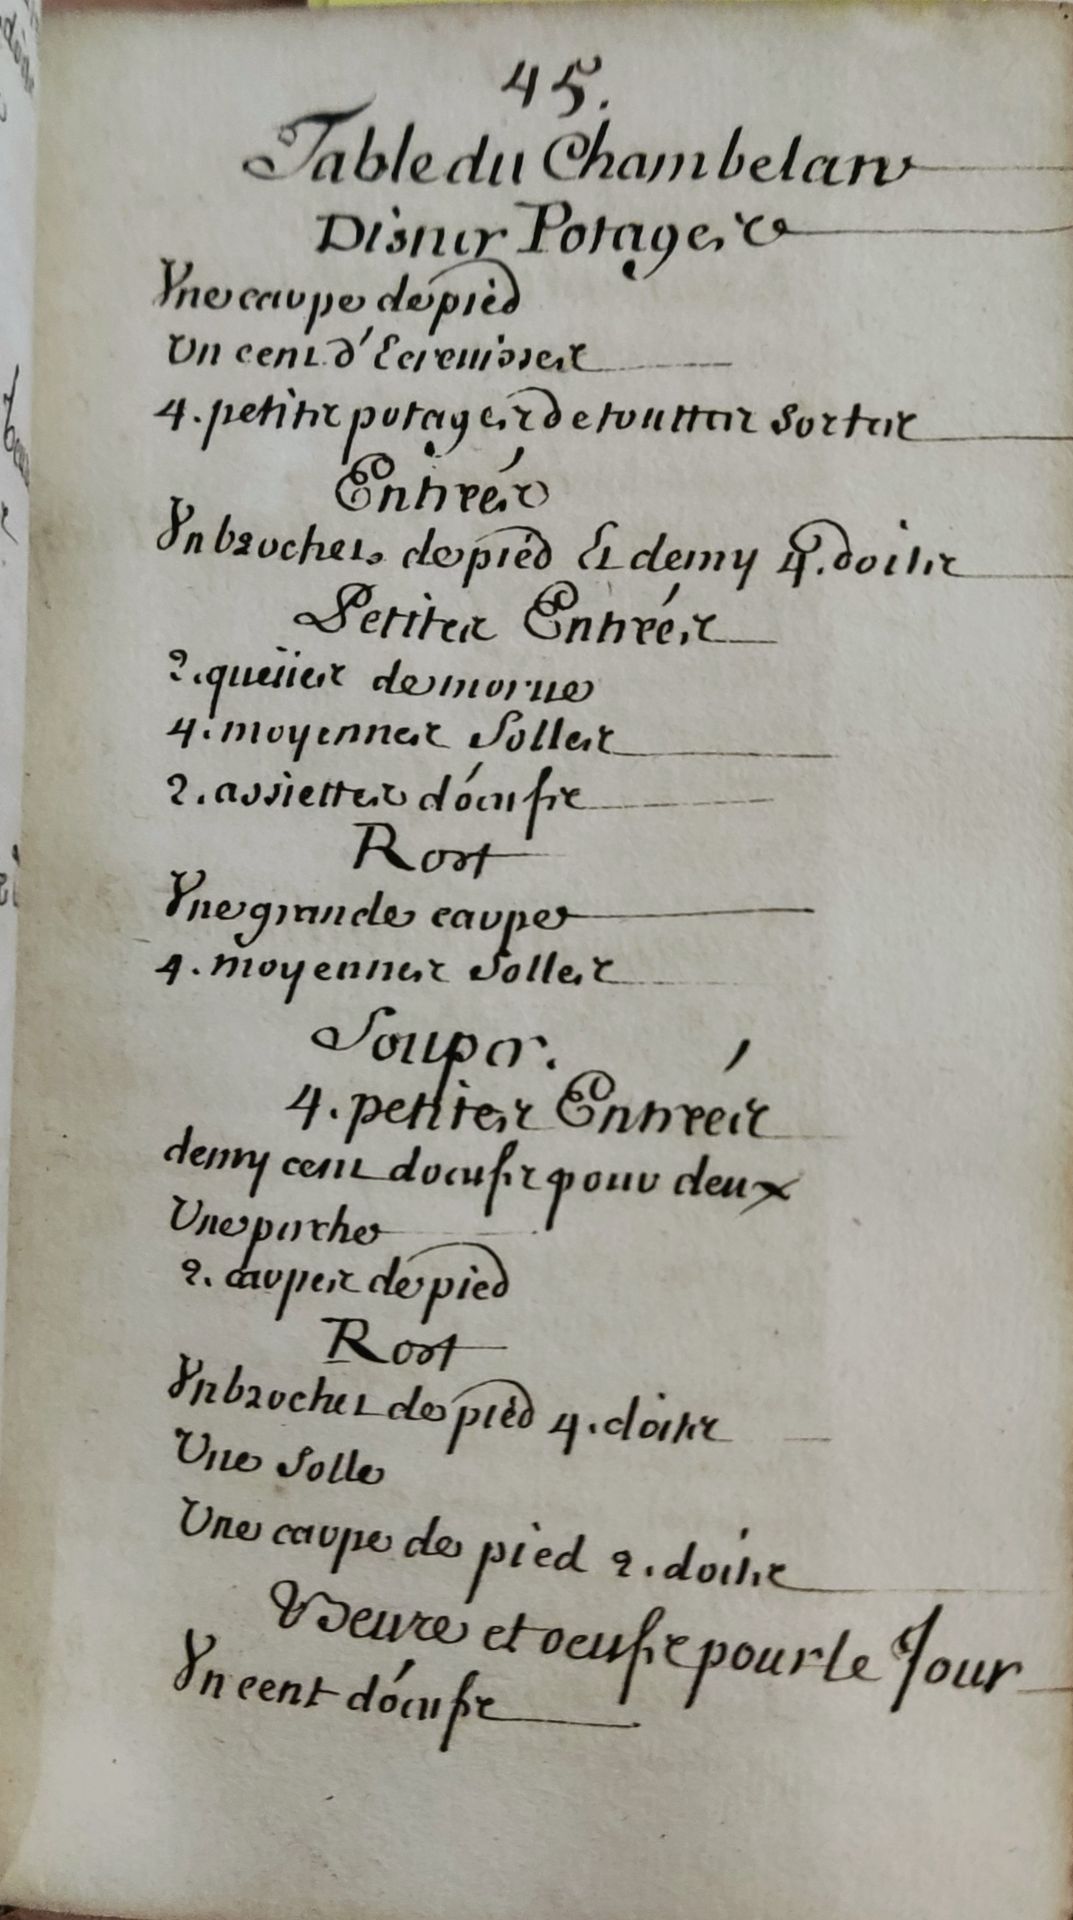 45.
Table du Chambelan
Disner Potages
Une carpe de pied
Un cent d'Ecrevisses
4. petits potages de touttes sortes
Entrées
Un brochet de pied Et demy 4. doits
Petites Entrées
2. queües de morue
4. moyennes Solles
2. assiettes d'œufs
Rost
Une grande carpe
4. moyennes Solles
Souper.
4. petites Entrées
demy cent dœufs pour deux
Une perche
2. carpes de pied
Rost
Un brochet de pied 4. doits
Une Solle
Une carpe de pied 2. doits
Beure et oeufs pour le Jour
Un cent d'œufs